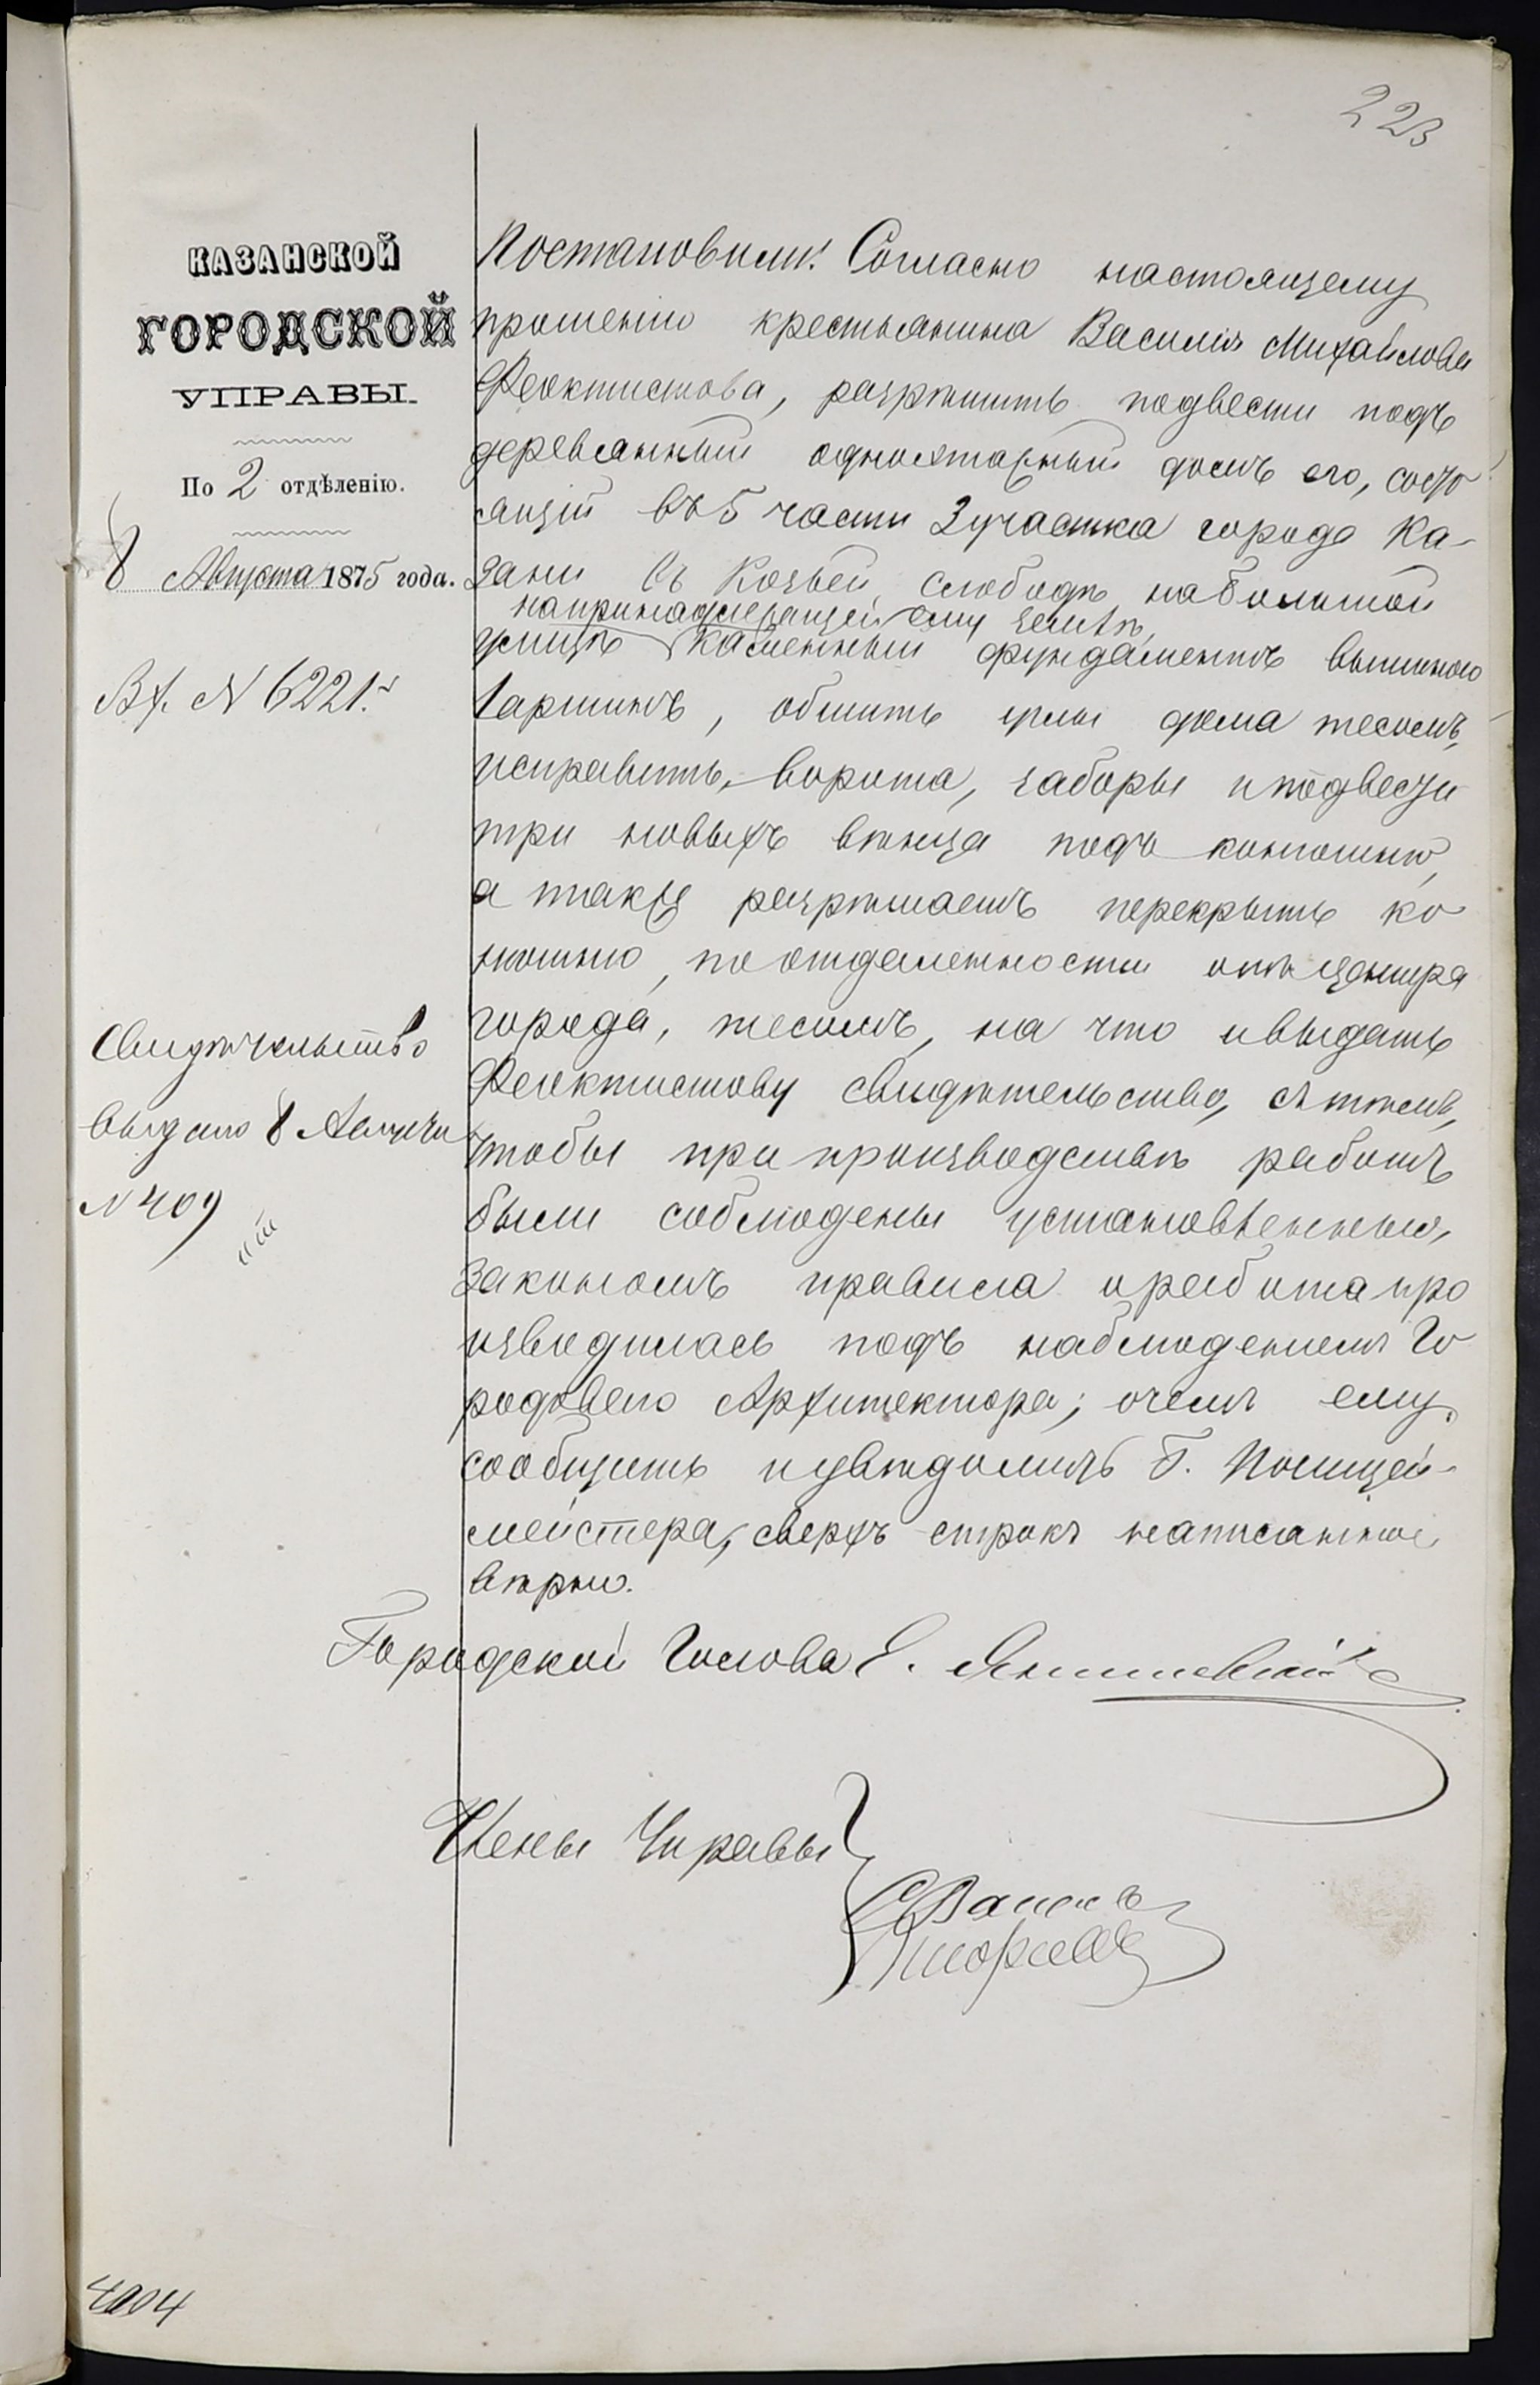 223
КАЗАНСКОЙ
ГОРОДСКОЙ
УПРАВЫ.
По 2 отдѣленію.
8 Августа 1875 года.
Вх. N 6221.
Свидѣтельство
выдано 8 Августа
N 409
Постановили: Согласно настоящему
прошенію крестьянина Василія Михайлова
Феоктистова, разрѣшить подвести подъ
деревянный одноэтажный домъ его, состо
ящій въ 5 части 3 участка города Ка-
зани въ Козьей слободѣ на большой
на принадлежащей ему землѣ,
улицѣ каменный фундаментъ вышиною
1 аршинъ, обшить углы дома тесомъ,
исправить, ворота, заборы и подвести
три новыхъ вѣнца подъ конюшню,
а также разрѣшаетъ перекрыть ко
нюшню, по отдаленности отъ центра
города, тесомъ, на что и выдать
Феоктистову свидѣтельство, съ тѣмъ,
чтобы при производствѣ работъ
были соблюдены установленныя
закономъ правила и работа про
изводилась подъ наблюденіемъ Го
родоваго Архитектора; о чемъ ему
сообщить и увѣдомить Г. Полицей-
мейстера, сверхъ строкъ написанное
вѣрно.
Городской Голова Е. Янишевскій
Члены Управы
4004